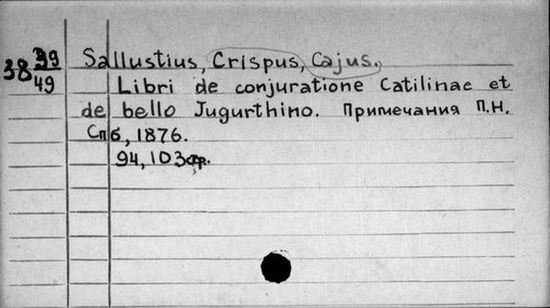 38 39/49
Sallustius, Crispus, Cajus.
Libri de conjuratione Catilinae et
de bello Jugurthino. Примечания П.Н.
Спб, 1876.
94, 103 стр.